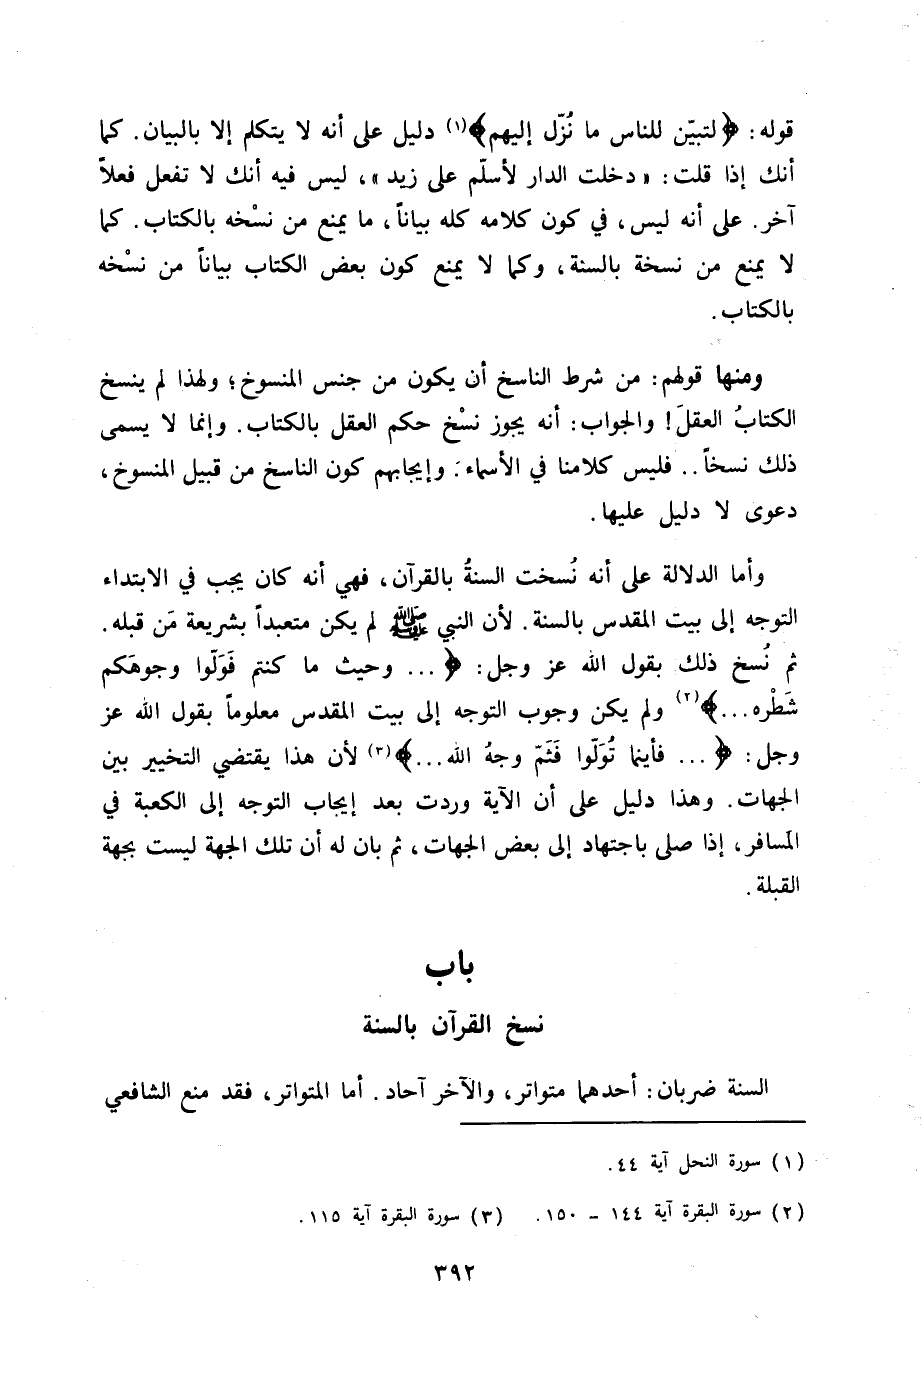 قوله: ﴿لتبيّن للناس ما نُزّل إليهم﴾(١) دليل على أنه لا يتكلم إلا بالبيان. كما
أنك إذا قلت: «دخلت الدار لأسلّم على زيد»، ليس فيه أنك لا تفعل فعلاً
آخر. على أنه ليس، في كون كلامه كله بياناً، ما يمنع من نسْخه بالكتاب. كما
لا يمنع من نسخة بالسنة، وكما لا يمنع كون بعض الكتاب بياناً من نسْخه
بالكتاب.
ومنها قولهم: من شرط الناسخ أن يكون من جنس المنسوخ؛ ولهذا لم ينسخ
الكتابُ العقلَ! والجواب: أنه يجوز نسْخ حكم العقل بالكتاب. وإنما لا يسمى
ذلك نسخاً.. فليس كلامنا في الأسماء. وإيجابهم كون الناسخ من قبيل المنسوخ،
دعوى لا دليل عليها.
وأما الدلالة على أنه نُسخت السنةُ بالقرآن، فهي أنه كان يجب في الابتداء
التوجه إلى بيت المقدس بالسنة. لأن النبي ﷺ لم يكن متعبداً بشريعة مَن قبله.
ثم نُسخ ذلك بقول الله عز وجل: ﴿... وحيث ما كنتم فَوَلّوا وجوهَكم
شَطْره...﴾(٢) ولم يكن وجوب التوجه إلى بيت المقدس معلوماً بقول الله عز
وجل: ﴿... فأينما تُوَلّوا فَثَمّ وجهُ الله...﴾(٣) لأن هذا يقتضي التخيير بين
الجهات. وهذا دليل على أن الآية وردت بعد إيجاب التوجه إلى الكعبة في
المسافر، إذا صلى باجتهاد إلى بعض الجهات، ثم بان له أن تلك الجهة ليست بجهة
القبلة.
باب
نسخ القرآن بالسنة
السنة ضربان: أحدهما متواتر، والآخر آحاد. أما المتواتر، فقد منع الشافعي
(١) سورة النحل آية ٤٤.
(٢) سورة البقرة آية ١٤٤ – ١٥٠. (٣) سورة البقرة آية ١١٥.
٣٩٢